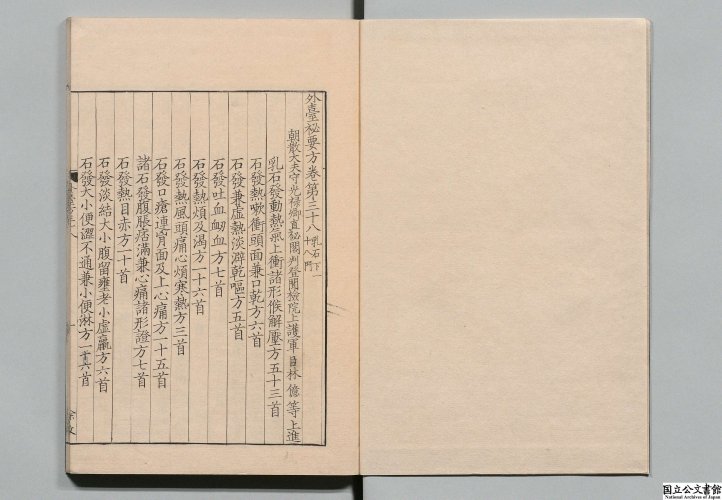 外臺祕要方卷第三十八 乳石下一十八門
朝散大夫守光祿卿直祕閣判登聞檢院上護軍臣林億等上進
乳石發動熱氣上衝諸形候解壓方五十三首
石發熱嗽衝頭面兼口乾方六首
石發兼虛熱淡澼乾嘔方五首
石發吐血衂血方七首
石發熱煩及渴方一十六首
石發熱風頭痛心煩寒熱方三首
石發口瘡連胷面及上心痛方一十五首
諸石發腹脹痞滿兼心痛諸形證方七首
石發熱目赤方一十首
石發淡結大小腹留壅老小虛羸方六首
石發大小便澀不通兼小便淋方一十六首
国立公文書館
National Archives of Japan